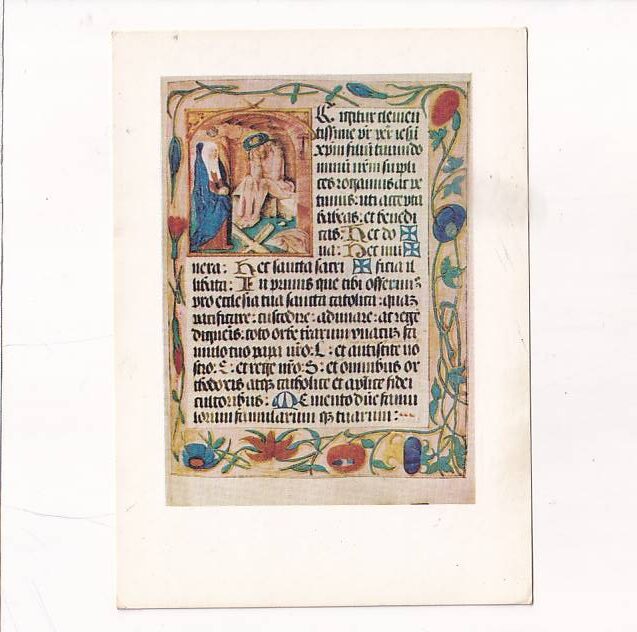 igitur clemen
tissime pr per iesū
xpm filiū tuum do
minū nr̄m suppli
ces rogamus ac pe
timus: uti accepta
habeas: et benedi
cas: Hec do
na: Hec mu
nera: Hec sancta sacri ficia il
libata: In primis que tibi offerimꝰ
pro ecclesia tua sancta catolica: quā
pacificare: custodire: adunare: et rege
digneris: toto orbe terrarum una cū fa
mulo tuo papa nr̄o: et antistite no
stro: et rege nr̄o: S: et omnibus or
thodoxis atqꝫ catholice et aplice fidei
cultoribus: Memento dn̄e famu
lorum famularum qꝫ tuarum: